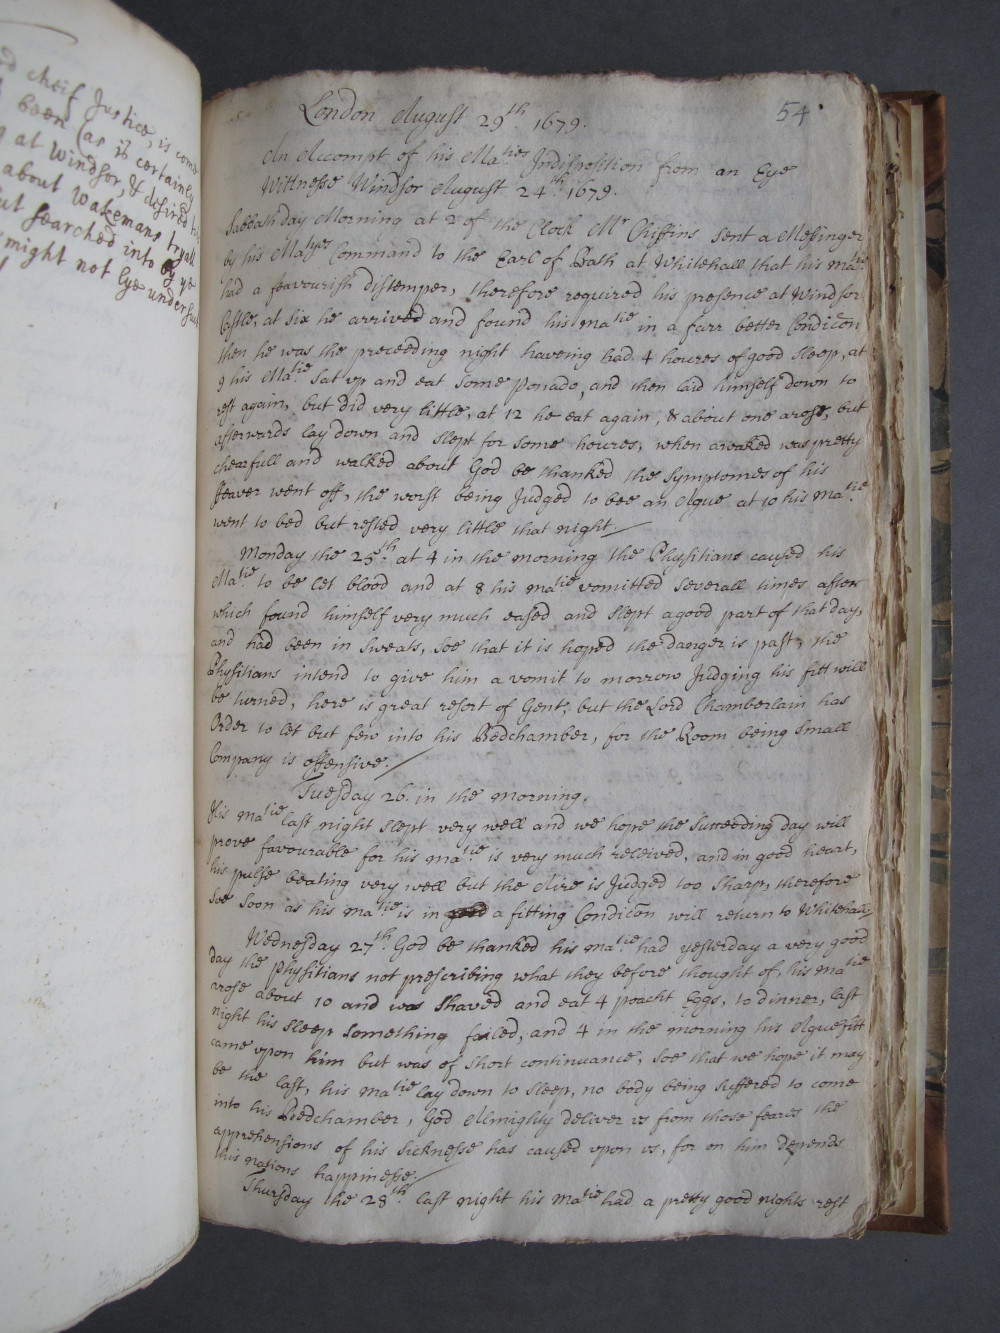 d cheif Justice, is come
been (as it certainly
at Windsor, & desired
about Wakemans tryall
searched into by ye
might not lye under
54
London August 29th. 1679.
An Accompt of his Maties Indisposition from an Eye
Wittnesse Windsor August 24th. 1679.
Sabbath day Morning at 2 of the Clock Mr Chiffins sent a Messinger
by his Matyes Command to the Earl of Bath at Whitehall that his Matie
had a feavourish distemper, therefore required his presence at Windsor
Castle, at six he arrived and found his Matie in a farr better Condicōn
then he was the preceeding night haveing had 4 houres of good sleep, at
9 his Matie. Sat up and eat some Ponado, and then laid himself down to
rest again, but did very little, at 12 he eat again, & about one arose, but
afterwards lay down and slept for some houres, when awaked was pretty
chearfull and walked about God be thanked the Symptomes of his
Feaver went off, the worst being Judged to bee an Ague at 10 his Matie
went to bed but rested very little that night
Monday the 25th. at 4 in the morning the Physitians caused his
Matie to be let blood and at 8 his Matie vomitted severall times after
which found himself very much eased and slept a good part of that day,
and had been in Sweats, soe that it is hoped the danger is past, the
Physitians intend to give him a vomit to morrow Judging his fitt will
be turned, here is great resort of Gent; but the Lord Chamberlain has
Order to let but few into his Bedchamber, for the Room being small
Company is offensive.
Tuesday 26. in the morning.
His Matie last night slept very well and we hope the succeeding day will
prove favourable for his Matie is very much releived, and in good heart,
his pulse beating very well but the Aire is Judged too sharp, therefore
soe soon as his Matie is in a fitting Condicōn will return to Whitehall
Wednesday 27th. God be thanked his Matie had yesterday a very good
day the Physitians not prescribing what they before thought of, his Matie
rose about 10 and was shaved and eat 4 poacht Eggs, to dinner, last
night his sleep something failed, and 4 in the morning his Aguefitt
came upon him but was of short continuance, soe that we hope it may
be the last, his Matie lay down to sleep, no body being suffered to come
into his Bedchamber, God Almighty deliver us from those feares the
apprehensions of his sicknesse has caused upon us, for on him depends
this nations happinesse.
Thursday the 28th. last night his Matie had a pretty good nights rest